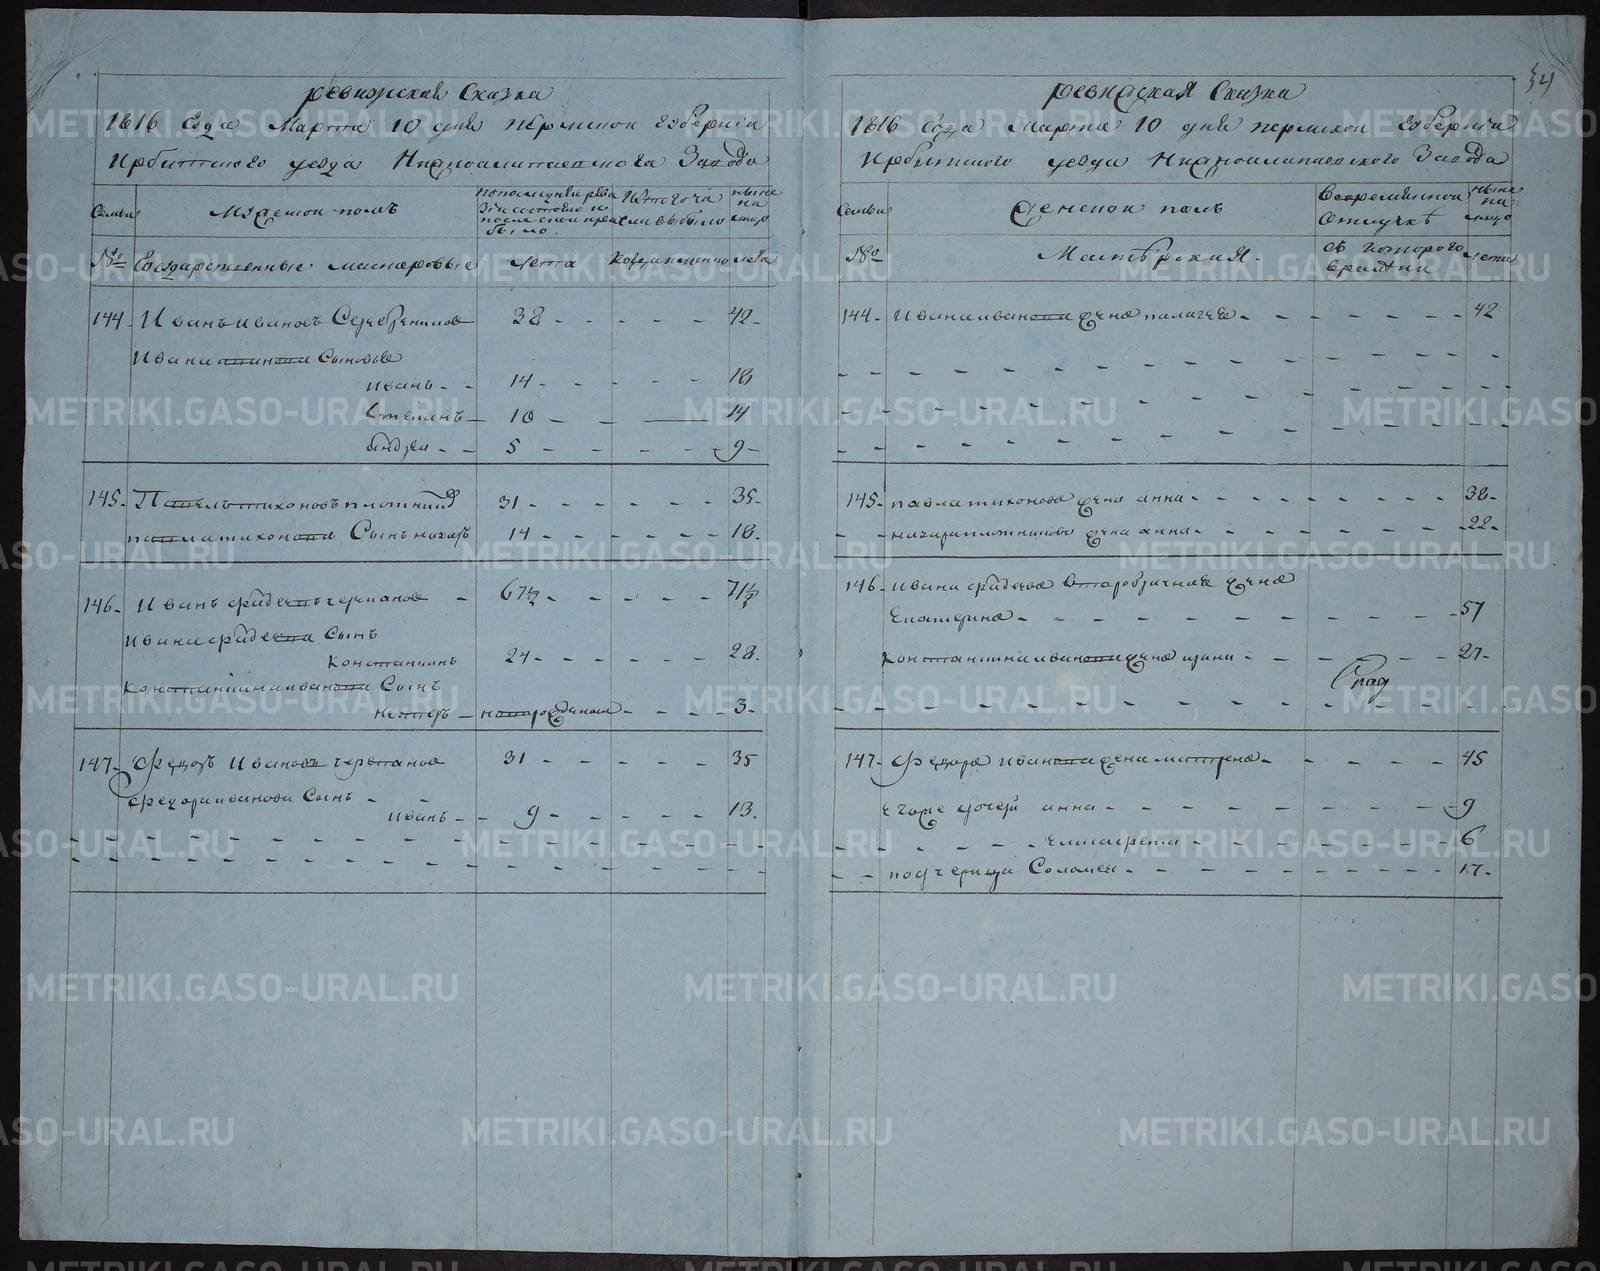 ревижская Сказка
1816 года Марта 10 дня пермской губернiи
Ирбитского уезда Нижноалапаевского Завода
Семьи мужеской полъ по последней ревизiи состояло и после оной прибыло Изтого числа выбыло ныне на лицо
№ Государственные мастеровые лета когда именно лета
144 Иванъ Ивановъ Серебрениковъ 38 42
Ивана Иванова Сыновье
Иванъ 14 18
Степанъ 10 14
андреи 5 9
145 Павелъ тихоновъ плотников 31 35
павла тихонова Сынъ назаръ 14 18
146 Иванъ фадеевъ черпанов 67½ 71½
Ивана фадеева Сынъ
Константинъ 24 28
Константина иванова Сынъ
Нестеръ новорожденной 3
147 Федоръ Ивановъ черпанов 31 35
Федора иванова Сынъ
Иванъ 9 13
34
ревиская Сказка
1816 года Марта 10 дня пермской губернiи
Ирбитского уезда Нижноалапаевского Завода
Семьи Женской полъ Вовременной отлучкѣ ныне на лицо
№ Мастерския съ которого времяни лета
144 Ивана иванова жена палагея 42
145 павла тихонова жена анна 38
назара плотникова жена анна 22
146 ивана фадеева второбрачная жена
Екатерина 57
константина иванова жена ирина 27
147 Федора иванова жена матрена 45
егоже дочери анна 9
елисавета 6
подчерица Соломея 17
METRIKI.GASO-URAL.RU